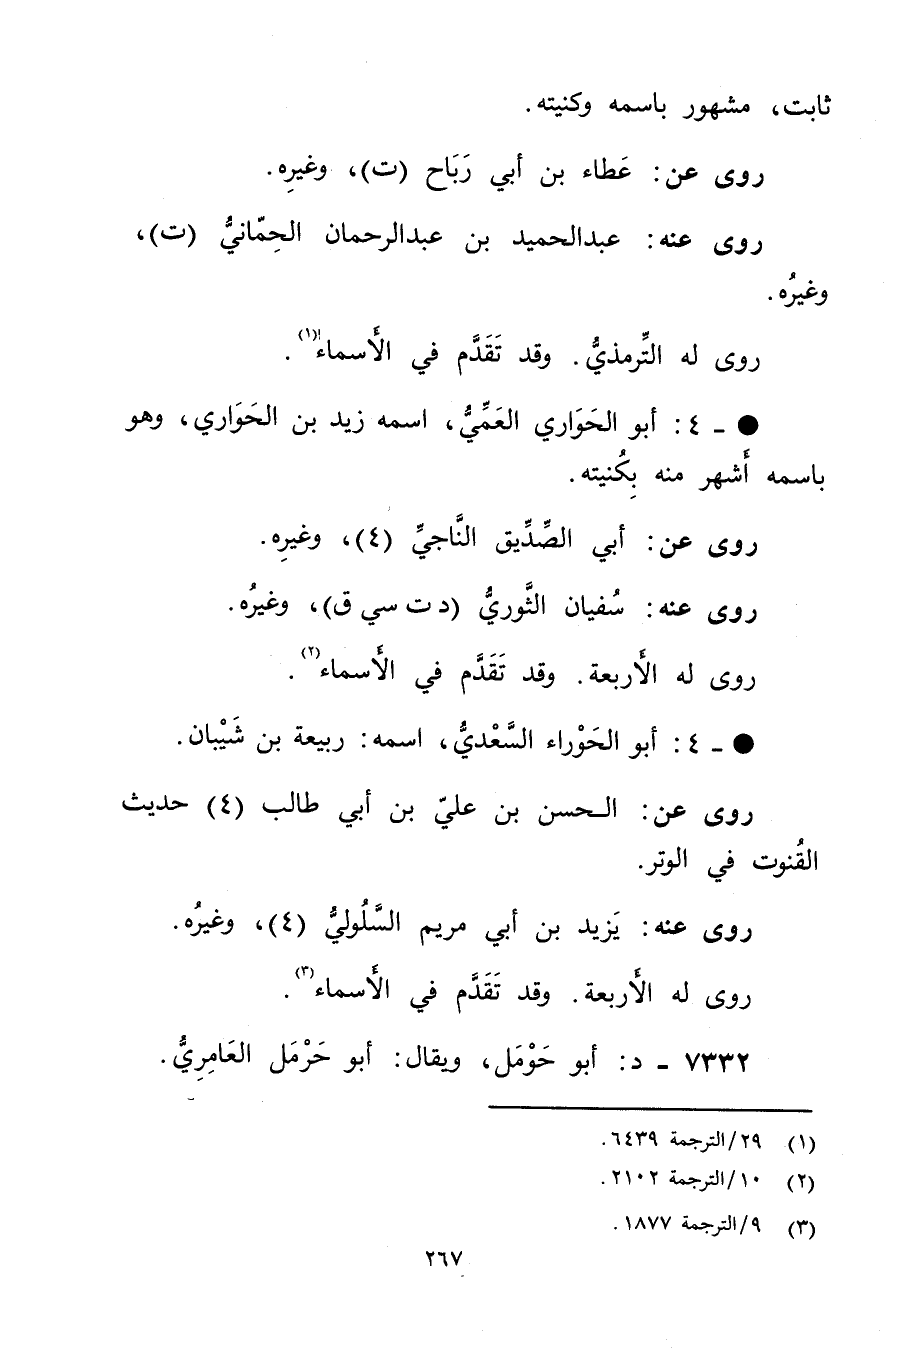 ثابت، مشهور باسمه وكنيته.
روى عن: عَطاء بن أبي رَبَاح (ت)، وغيرِه.
روى عنه: عبدالحميد بن عبدالرحمان الحِمّانيُّ (ت)،
وغيرُه.
روى له التِّرمذيُّ. وقد تَقَدَّم في الأَسماء(١).
● ـ ٤: أبو الحَوَاري العَمِّيُّ، اسمه زيد بن الحَوَاري، وهو
باسمه أَشهر منه بِكُنيته.
روى عن: أبي الصِّدِّيق النَّاجيِّ (٤)، وغيرِه.
روى عنه: سُفيان الثَّوريُّ (د ت سي ق)، وغيرُه.
روى له الأَربعة. وقد تَقَدَّم في الأَسماء(٢).
● ـ ٤: أبو الحَوْراء السَّعْديُّ، اسمه: ربيعة بن شَيْبان.
روى عن: الحسن بن عليّ بن أبي طالب (٤) حديث
القُنوت في الوتر.
روى عنه: يَزيد بن أبي مريم السَّلُوليُّ (٤)، وغيرُه.
روى له الأَربعة. وقد تَقَدَّم في الأَسماء(٣).
٧٣٣٢ ـ د: أبو حَوْمَل، ويقال: أبو حَرْمَل العَامِرِيُّ.
(١) ٢٩/الترجمة ٦٤٣٩.
(٢) ١٠/الترجمة ٢١٠٢.
(٣) ٩/الترجمة ١٨٧٧.
٢٦٧